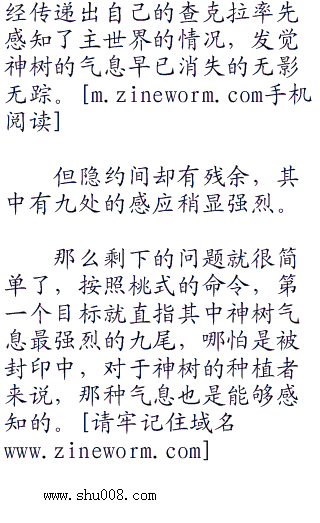 经传递出自己的查克拉率先
感知了主世界的情况，发觉
神树的气息早已消失的无影
无踪。[m.zineworm.com手机
阅读]
但隐约间却有残余，其
中有九处的感应稍显强烈。
那么剩下的问题就很简
单了，按照桃式的命令，第
一个目标就直指其中神树气
息最强烈的九尾，哪怕是被
封印中，对于神树的种植者
来说，那种气息也是能够感
知的。[请牢记住域名
www.zineworm.com]
www.shu008.com